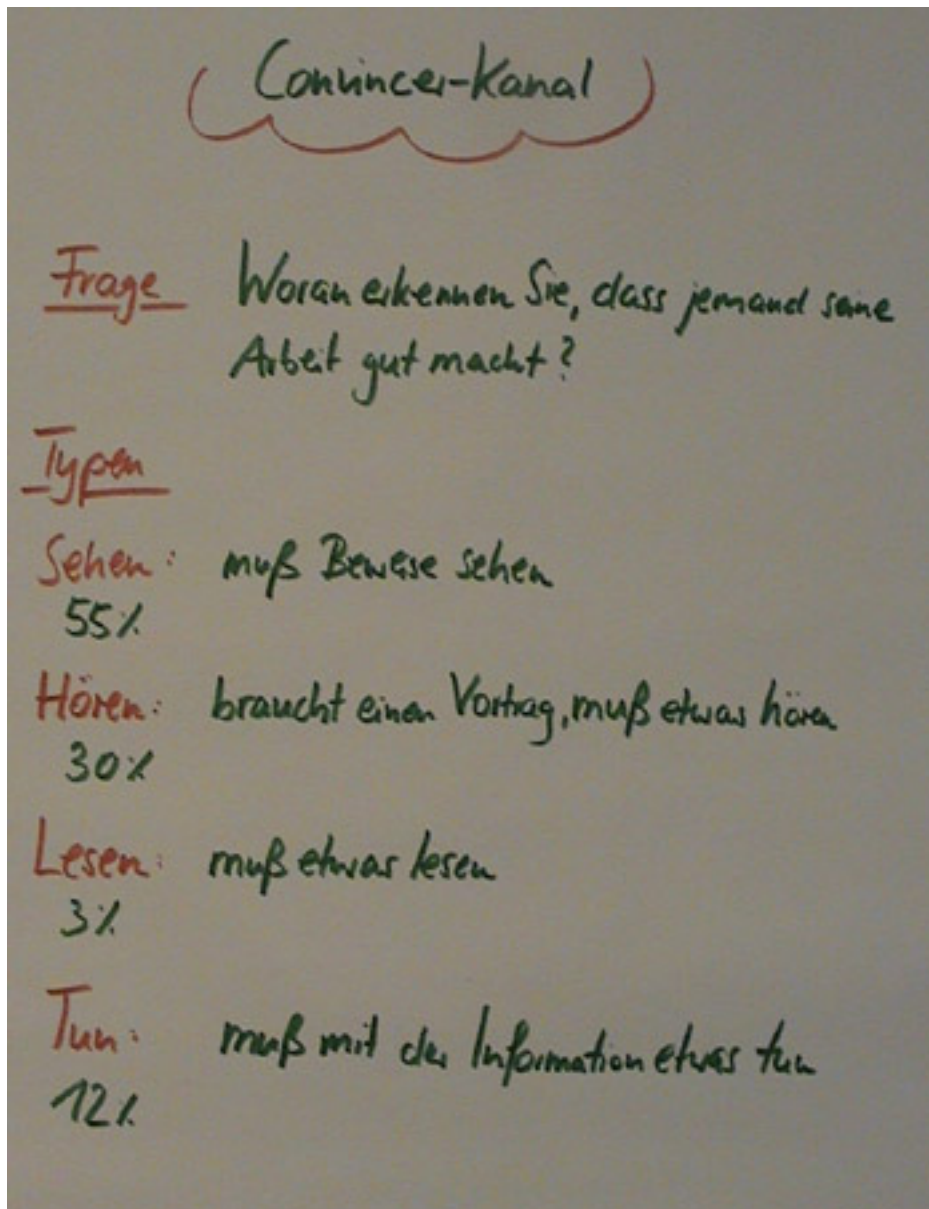 Convincer-Kanal
Frage Woran erkennen Sie, dass jemand seine
Arbeit gut macht?
Typen
Sehen: muß Beweise sehen
55%
Hören: braucht einen Vortrag, muß etwas hören
30%
Lesen: muß etwas lesen
3%
Tun: muß mit der Information etwas tun
12%